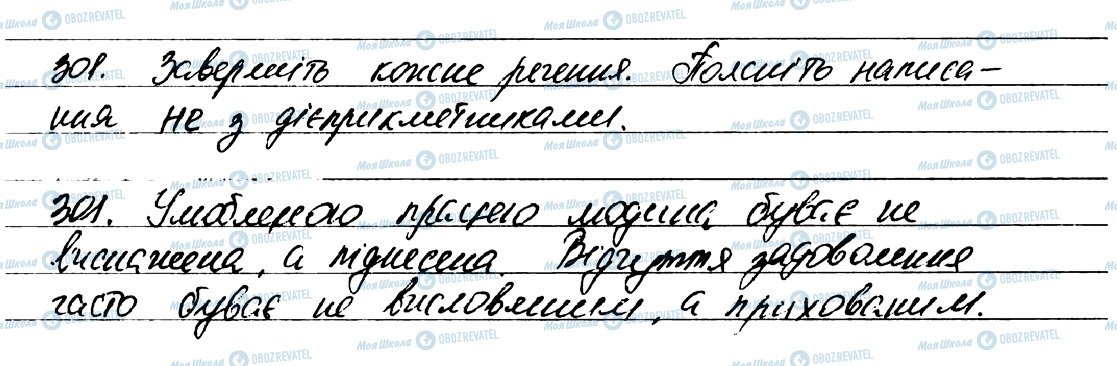 301. Завершіть кожне речення. Поясніть написа-
ння не з дієприкметниками.
301. Улюбленою працею людина буває не
виснажена, а піднесена. Відчуття задоволення
часто буває не висловленим, а прихованим.